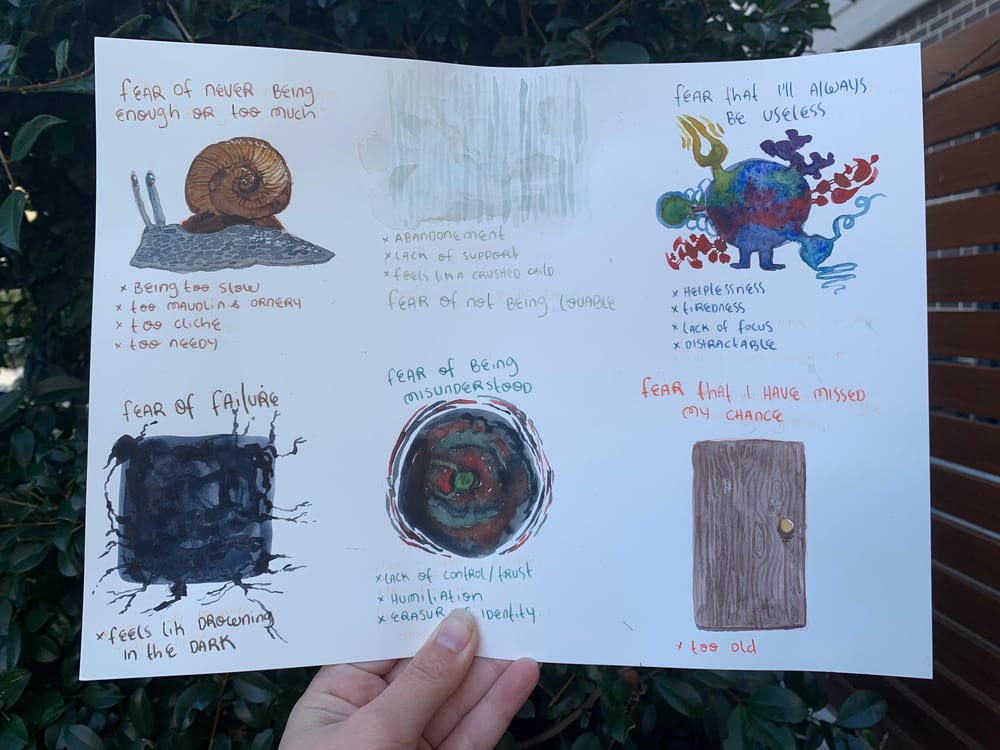 fear of never being
enough or too much
× Being too slow
× too maudlin & ornery
× too cliche
× too needy
× Abandonement
× Lack of support
× feels like a crushed child
fear of not being lovable
fear that I'll always
be useless
× Helplessness
× tiredness
× lack of focus
× distractable
fear of failure
× feels lik drowning
in the dark
fear of being
misunderstood
× lack of control/trust
× Humiliation
× erasur identity
fear that I have missed
my chance
× too old